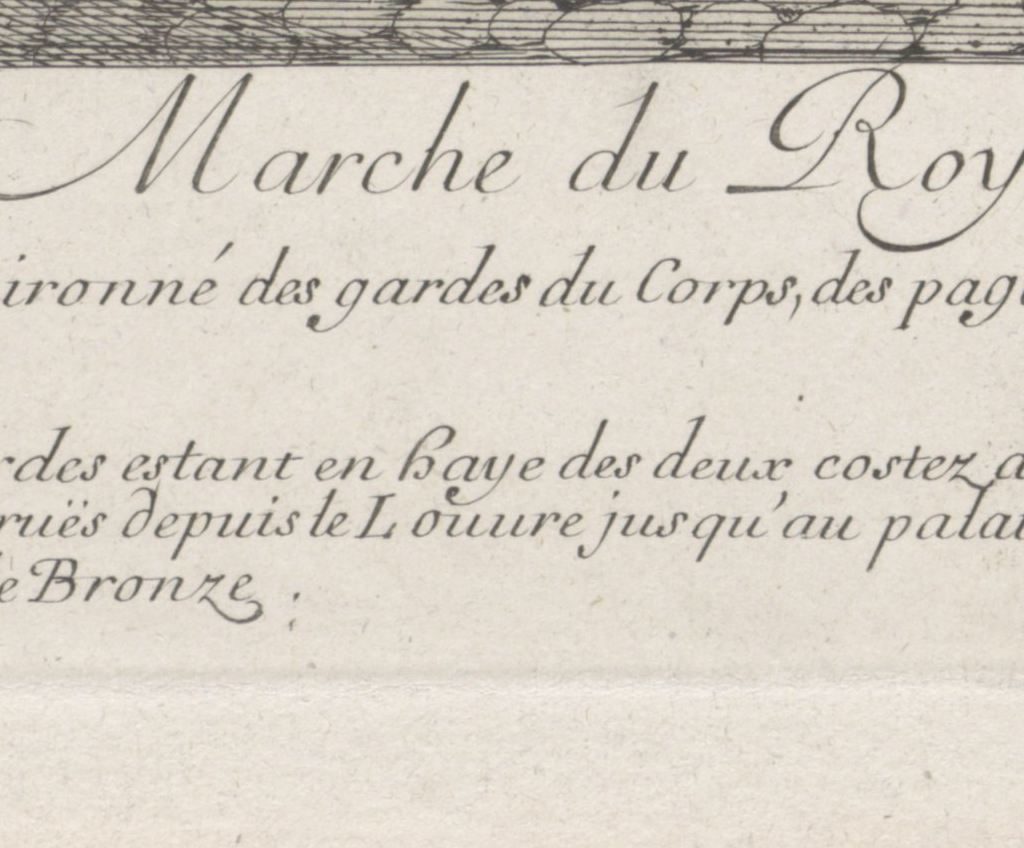 Marche du Roy
ironné des gardes du Corps, des pag
rdes estant en haye des deux costez d
ruës depuis le Louure jusqu'au palai
e Bronze.